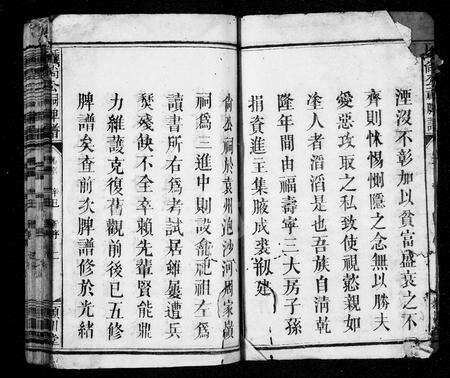 湮沒不彰加以貧富盛衰之不
齊則怵惕惻隱之念無以勝夫
愛惡攻取之私致使視懿親如
塗人者滔滔是也吾族自清乾
隆年間由福壽寧三大房子孫
捐資進主集腋成裘剏建
尙公祠於袁州池沙河周家嶺
祠爲三進中則設龕祀祖左爲
讀書所右爲考試居雖屢遭兵
燹殘缺不全幸賴先輩賢能鼎
力維護克復舊觀前後已五修
牌譜矣查前次牌譜修於光緒
尙公祠牌譜